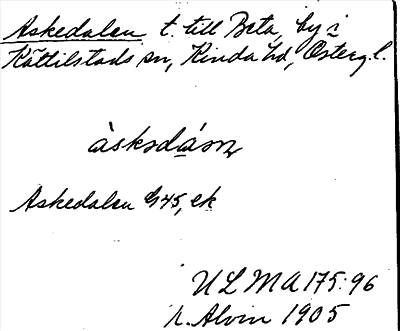 Askedalen t. till Beta, by i
Kättilstads sn, Kinda hd, Österg. l.
àsksdáσn
Askedalen G45, ek
ULMA 175:96
A. Alvin 1905